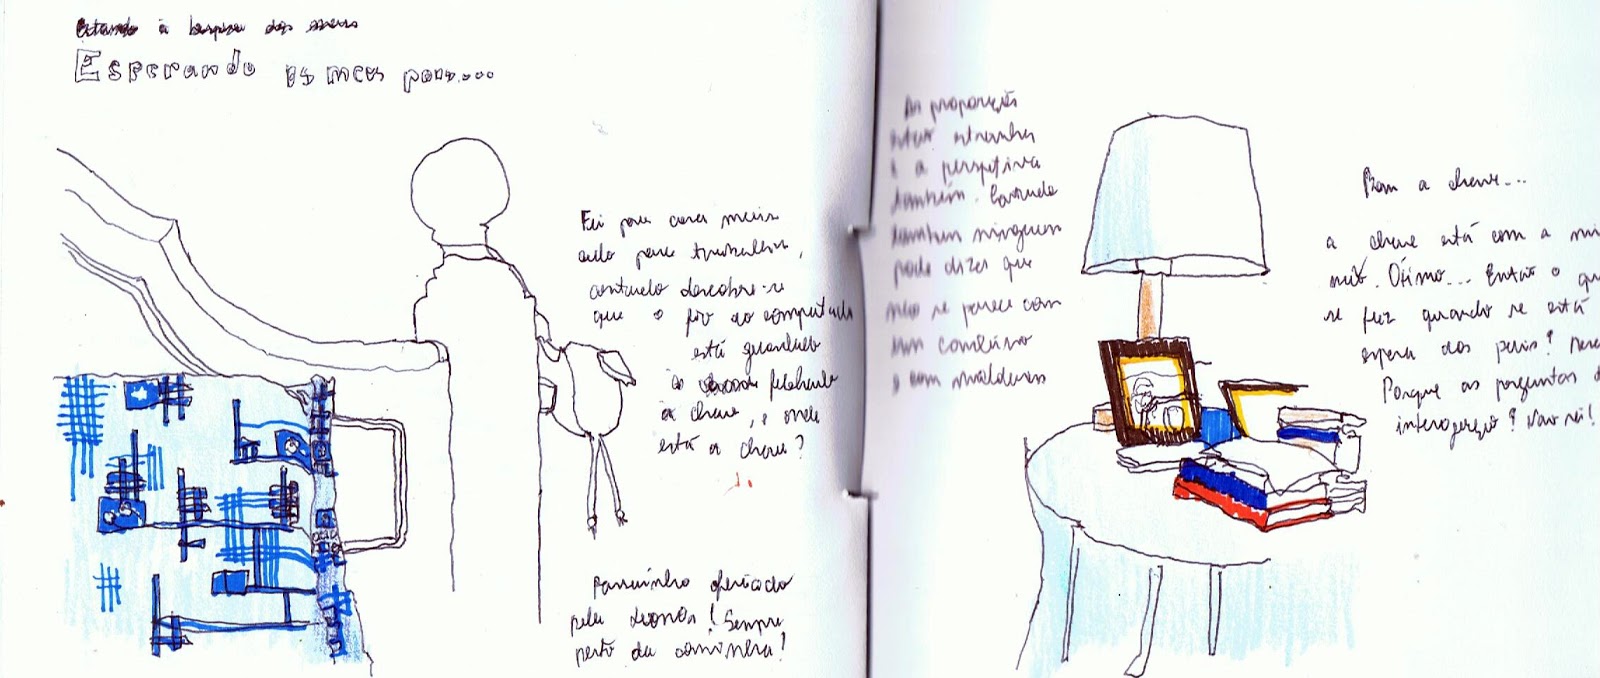 Estando à espera dos meus
Esperando os meus pais....
Fui para casa mais
cedo para trabalhar,
contudo descobre-se
que o fio do computador
está guardado
fechado
a chave, e onde
está a chave?
Passarinho oferecido
pela Leonor! Sempre
perto da caminha!
As proporções
estão estranhas
e a perspetiva
também. Contudo
também ninguem
pode dizer que
não se parece com
um candeeiro
e com molduras
Bom a chave...
a chave está com a mi
mãe. Ótimo... Então o qu
se faz quando se está
espera dos pais?
Porque as perguntas d
interrogação? Não sei!